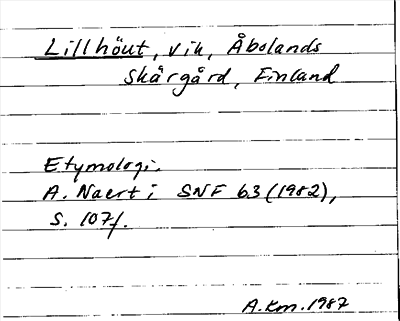 Lillhöut, vik, Åbolands
skärgård, Finland
Etymologi.
A. Naert i SNF 63 (1982),
s. 107f.
A.Km. 1987